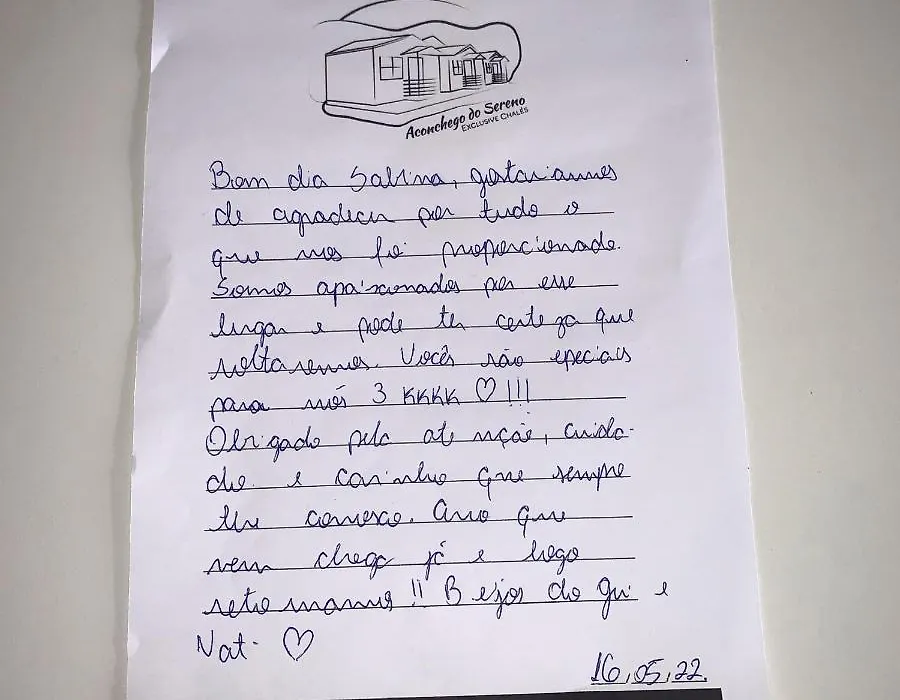 Aconchego do Sereno
EXCLUSIVE CHALÉS
Bom dia Sabrina, gostariamos
de agradecer por tudo o
que nos foi proporcionado.
Somos apaixonados por esse
lugar e pode ter certeza que
voltaremos. Vocês são epeciais
para nós 3 KKKK ♡!!!
Obrigado pela atenção, cuida-
do e carinho que sempre
tem conosco. Ano que
vem chega já e logo
retornamos!! Bejos do Gui e
Nat. ♡
16,05,22.